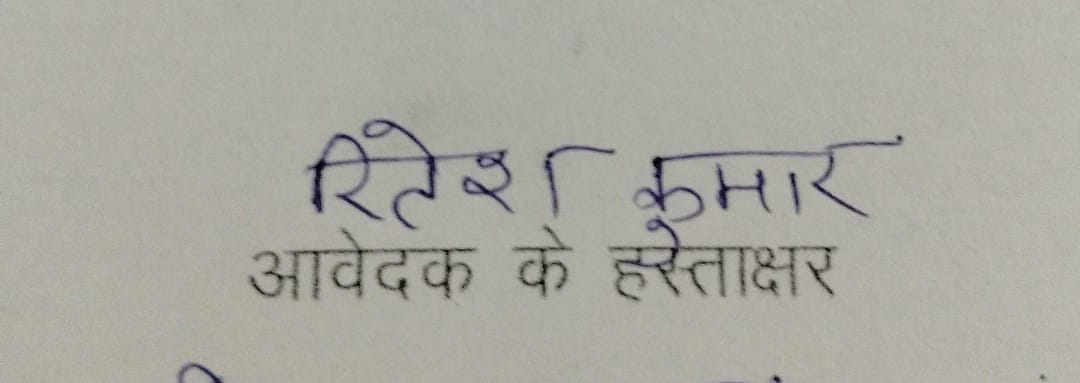 रितेश कुमार
आवेदक के हस्ताक्षर